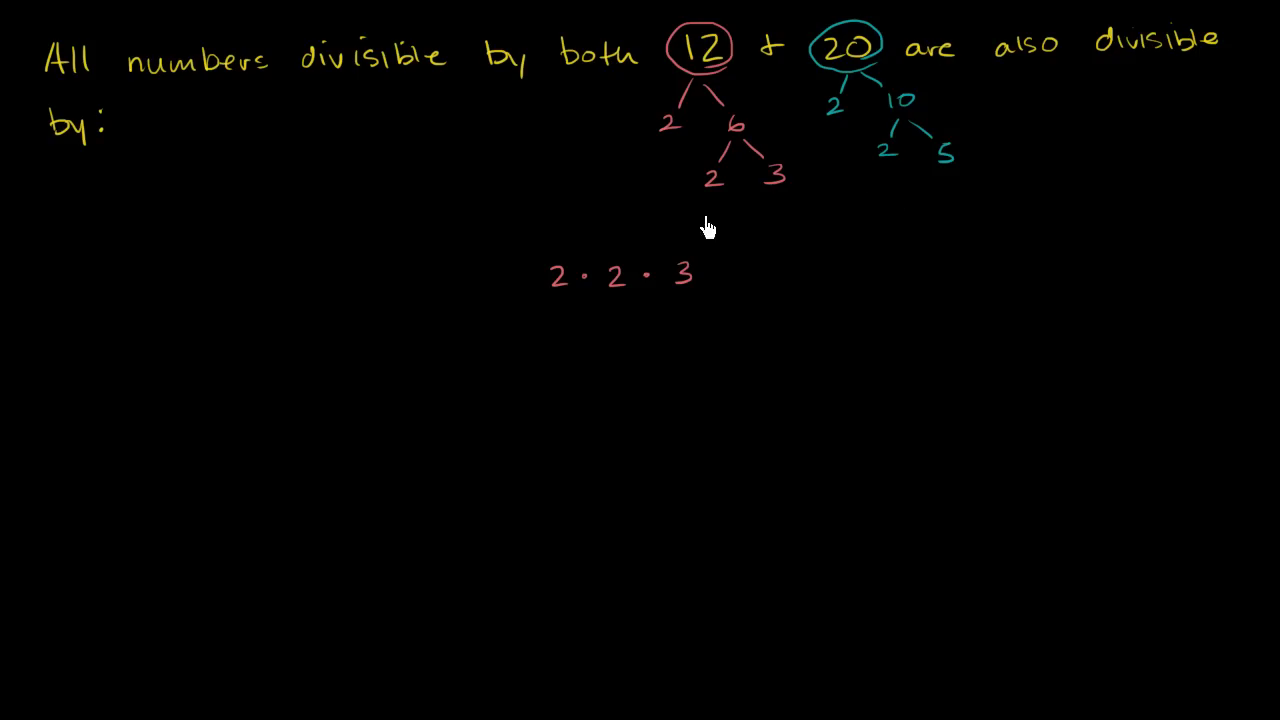 All numbers divisible by both 12 + 20 are also divisible
by:
2 10
2 6
2 5
2 3
2 · 2 · 3